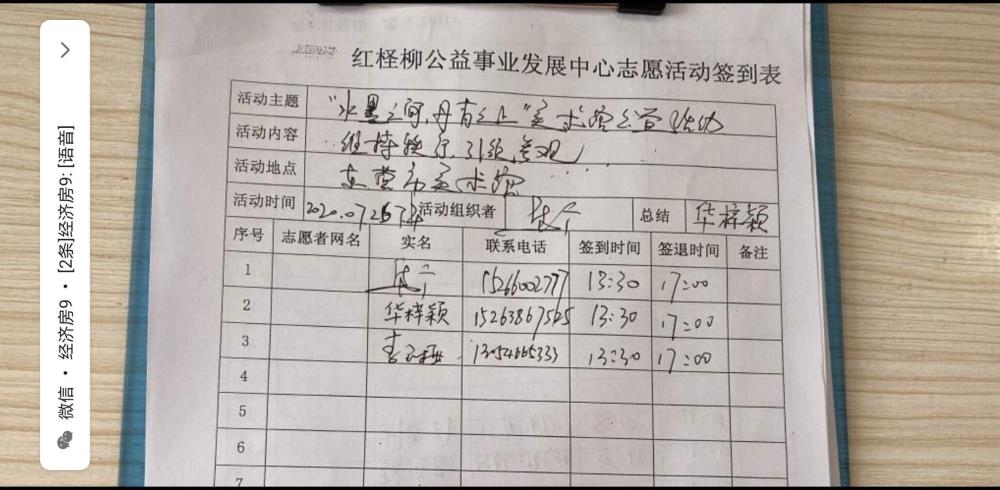 红柽柳公益事业发展中心志愿活动签到表
活动主题 "水墨之间,丹青之上"美术馆公益活动
活动内容 维持秩序,引领参观
活动地点 东营市美术馆
活动时间 2020.07.26下午 活动组织者 总结 华梓颖
序号 志愿者网名 实名 联系电话 签到时间 签退时间 备注
1 15266002777 13:30 17:00
2 华梓颖 15263867525 13:30 17:00
3 13054665333 13:30 17:00
4
5
6
7
微信 · 经济房9 · [2条]经济房9: [语音]